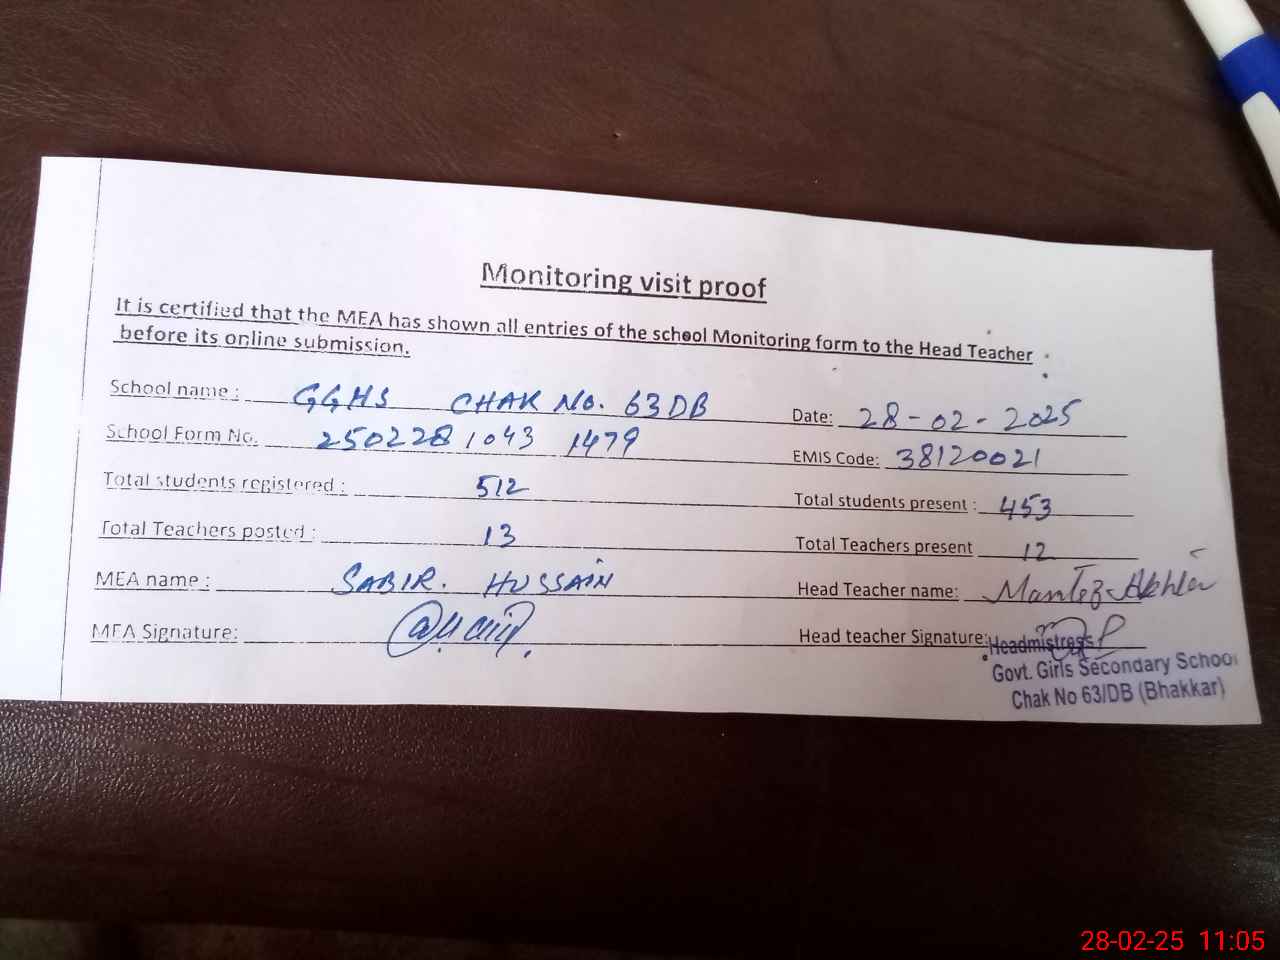 Monitoring visit proof
It is certified that the MEA has shown all entries of the school Monitoring form to the Head Teacher
before its online submission.
School name : GGHS CHAK No. 63 DB Date: 28-02-2025
School Form No. 250228 1043 1479 EMIS Code: 38120021
Total students registered : 512 Total students present : 453
Total Teachers posted : 13 Total Teachers present 12
MEA name : SABIR. HUSSAIN Head Teacher name: Akhtar
MEA Signature: Head teacher Signature:
Headmistress
Govt. Girls Secondary School
Chak No 63/DB (Bhakkar)
28-02-25 11:05